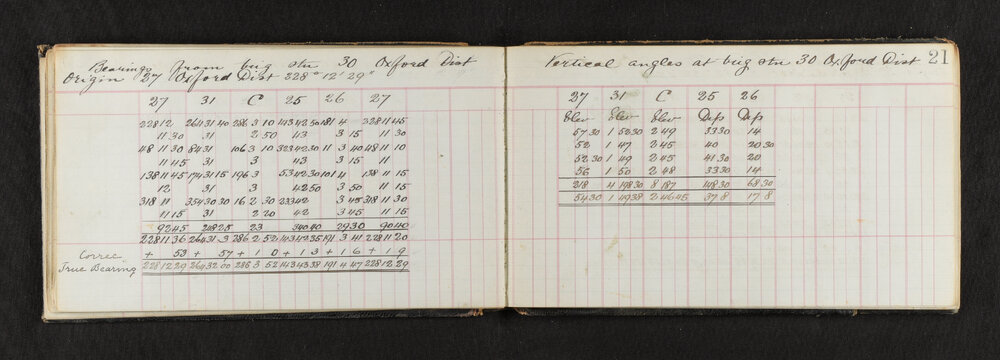 Bearings from trig stn 30 Oxford Dist
Origin 27 Oxford Dist 228° 12' 29"
27 31 C 25 26 27
228 12 264 31 40 286 3 10 143 42 50 191 4 228 11 45
11 30 31 2 50 43 3 15 11 30
48 11 30 84 31 106 3 10 323 42 30 11 3 40 48 11 10
11 45 31 3 43 3 15 11
138 11 45 174 31 15 196 3 53 42 30 101 4 138 11 15
12 31 3 42 50 3 50 11 15
318 11 354 30 30 16 2 30 233 42 3 45 318 11 30
11 15 31 2 20 42 3 45 11 15
92 45 248 25 23 340 40 29 30 90 40
228 11 36 264 31 3 286 2 52 143 42 35 191 3 41 228 11 20
Correc + 53 + 57 + 1 0 + 1 3 + 1 6 + 1 9
True Bearing 228 12 29 264 32 00 286 3 52 143 43 38 191 4 47 228 12 29
Vertical angles at trig stn 30 Oxford Dist 21
27 31 C 25 26
Elev Elev Elev Deps Deps
57 30 1 52 30 2 49 33 30 14
52 1 47 2 45 40 20 30
52 30 1 49 2 45 41 30 20
56 1 50 2 48 33 30 14
218 4 198 30 8 187 148 30 68 30
54 30 1 49 38 2 46 45 37 8 17 8